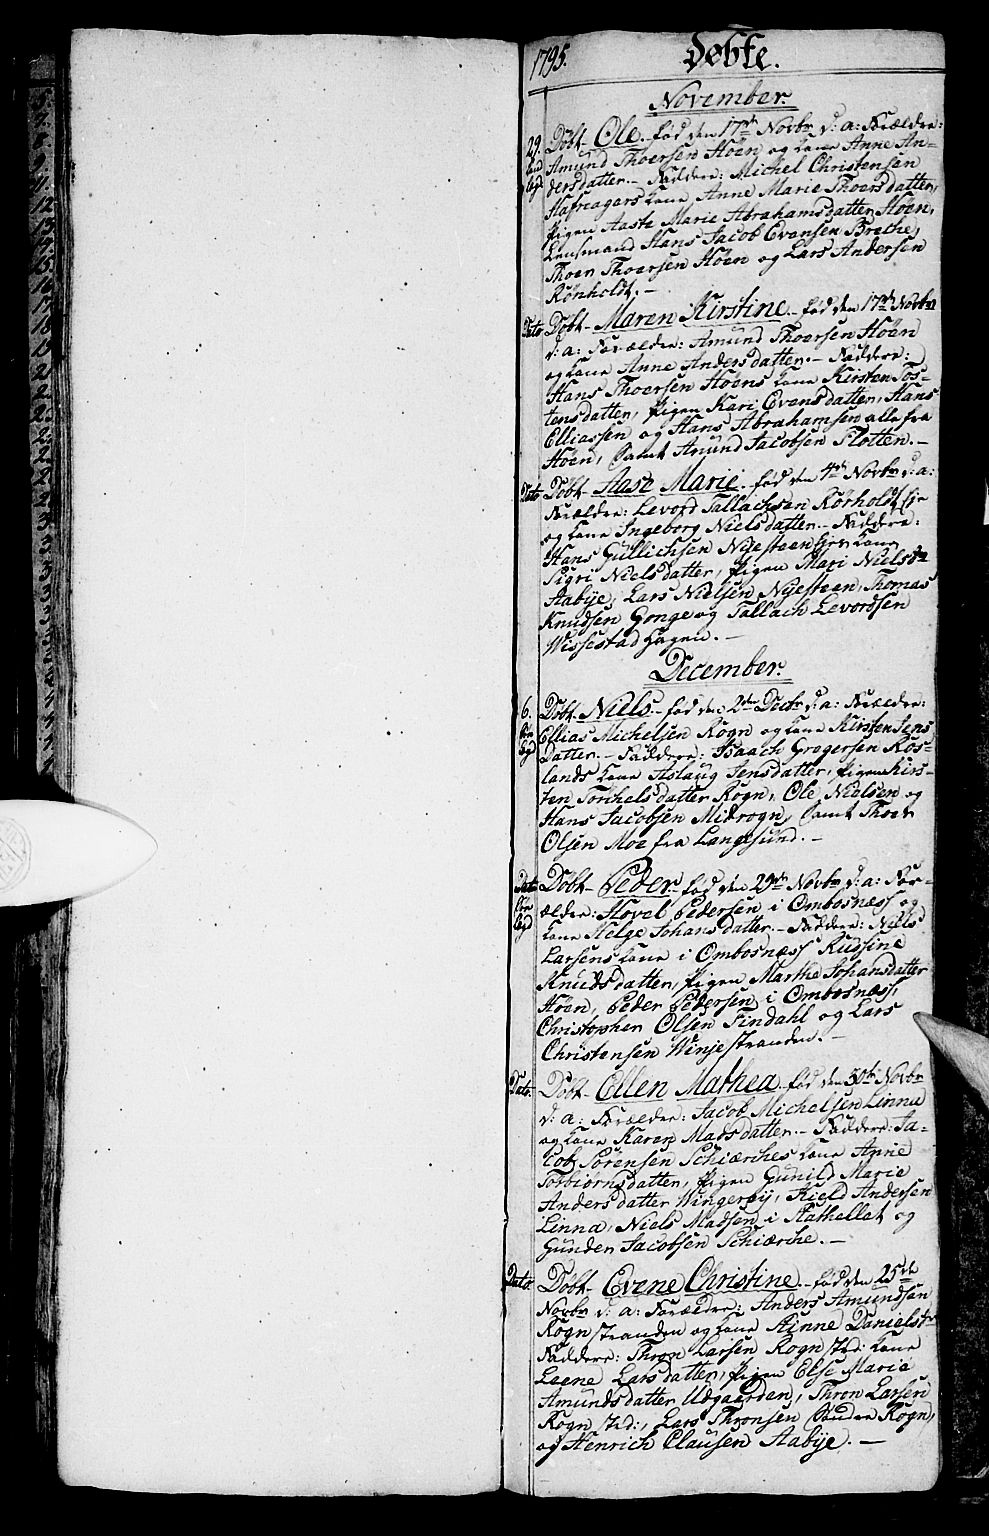 1795. Döbte.
November.
29. Döbt Ole. fød den 17de Novbr d: a: Forældre:
Amund Thoersen Höen og kone Anne An-
dersdatter. Faddere: Michel Christensen
Hafsragers kone Anne Marie Thoersdatter,
Pigen Aaste Marie Abrahamsdatter Höen,
Lensmand Hans Jacob Evensen Brekke,
Thoer Thoersen Höen og Lars Andersen
Rönholdt. –
Dato Döbt Maren Kirstine. fød den 17de Novbr
d: a: Forældre: Amund Thoersen Höen
og kone Anne Andersdatter. – Faddere:
Hans Thoersen Höens kone Kirsten Tos-
tensdatter, Pigen Kari Evensdatter, Hans
Elliassen og Hans Abrahamsen alle fra
Höen, Samt Amund Jacobsen Flotten. –
Dato Döbt Aase Marie. fød den 4de Novbr d: a:
Forældre: Levord Tallachsen Rörholdt Eje
og kone Ingeborg Nielsdatter. – Faddere:
Hans Gullichsen Nyesteen Ejes kone
Sigri Nielsdatter, Pigen Mari Nielsdtr
Aabye, Lars Nielsen Nyesteen, Thomas
Knudsen Gonge og Tallach Levordsen
Wissestad hagen. –
December.
6. Döbt Niels. fød den 2den Decbr d: a: Forældre:
Ellias Michelsen Rogn og kone Kirsten Jens
Datter. – Faddere: Isaach Gregersen Ros-
lands kone Aslaug Jensdatter, Pigen Kirs-
ten Torkelsdatter Rogn, Ole Nielsen og
Hans Jacobsen Midrogn, Samt Thoer
Olsen Moe fra Langesund. –
Dato Döbt Peder. fød den 29de Novbr d: a: For-
ældre: Hovel Pedersen i Ombosnæss og
kone Helge Johansdatter. – Faddere: Niels
Larsens kone i Ombosnæss Russine
Knudsdatter, Pigen Marthe Johansdatter
Höen, Peder Pedersen i Ombosnæss,
Christopher Olsen Tindahl og Lars
Christensen Winjestranden. –
Dato Döbt Ellen Mathea. fød den 30te Novbr
d: a: Forældre: Jacob Michelsen Linna
og kone Karen Madsdatter. – Faddere: Ja-
cob Sörensen Schiærches kone Anne
Torbiörnsdatter, Pigen Gunild Marie
Andersdatter Wingeröy, Kield Andersen
Linna, Niels Madsen i Aathellat og
Gunder Jacobsen Schiærche. –
Dato Döbt Evene Christine. fød den 25de
Novbr d: a: Forældre: Anders Amundsen
Rognstranden og kone Ainne Danielsdtr
Faddere: Thron Larsen Rognstrd: kone
Leene Larsdatter, Pigen Else Maria
Amundsdatter Udgaarden, Thron Larsen
Rognstrd:, Lars Thronsen Söndre Rogn,
og Henrich Clausen Aabye. –